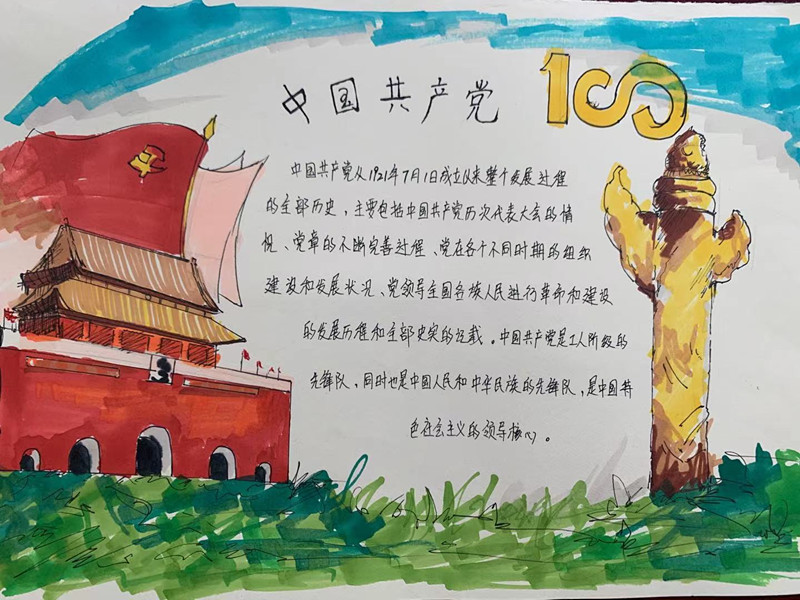 中国共产党
100
中国共产党从1921年7月1日成立以来整个发展过程
的全部历史，主要包括中国共产党历次代表大会的情
况、党章的不断完善过程、党在各个不同时期的组织
建设和发展状况、党领导全国各族人民进行革命和建设
的发展历程和全部史实的记载。中国共产党是工人阶级的
先锋队，同时也是中国人民和中华民族的先锋队，是中国特
色社会主义的领导核心。